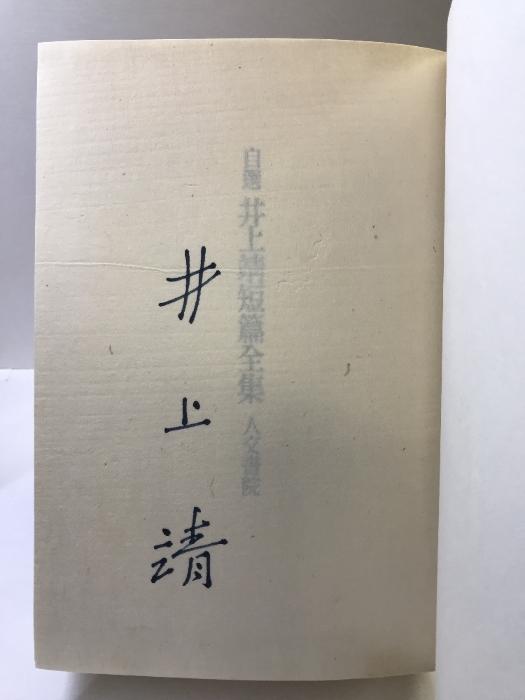 自選 井上靖短篇全集 人文書院
井上靖